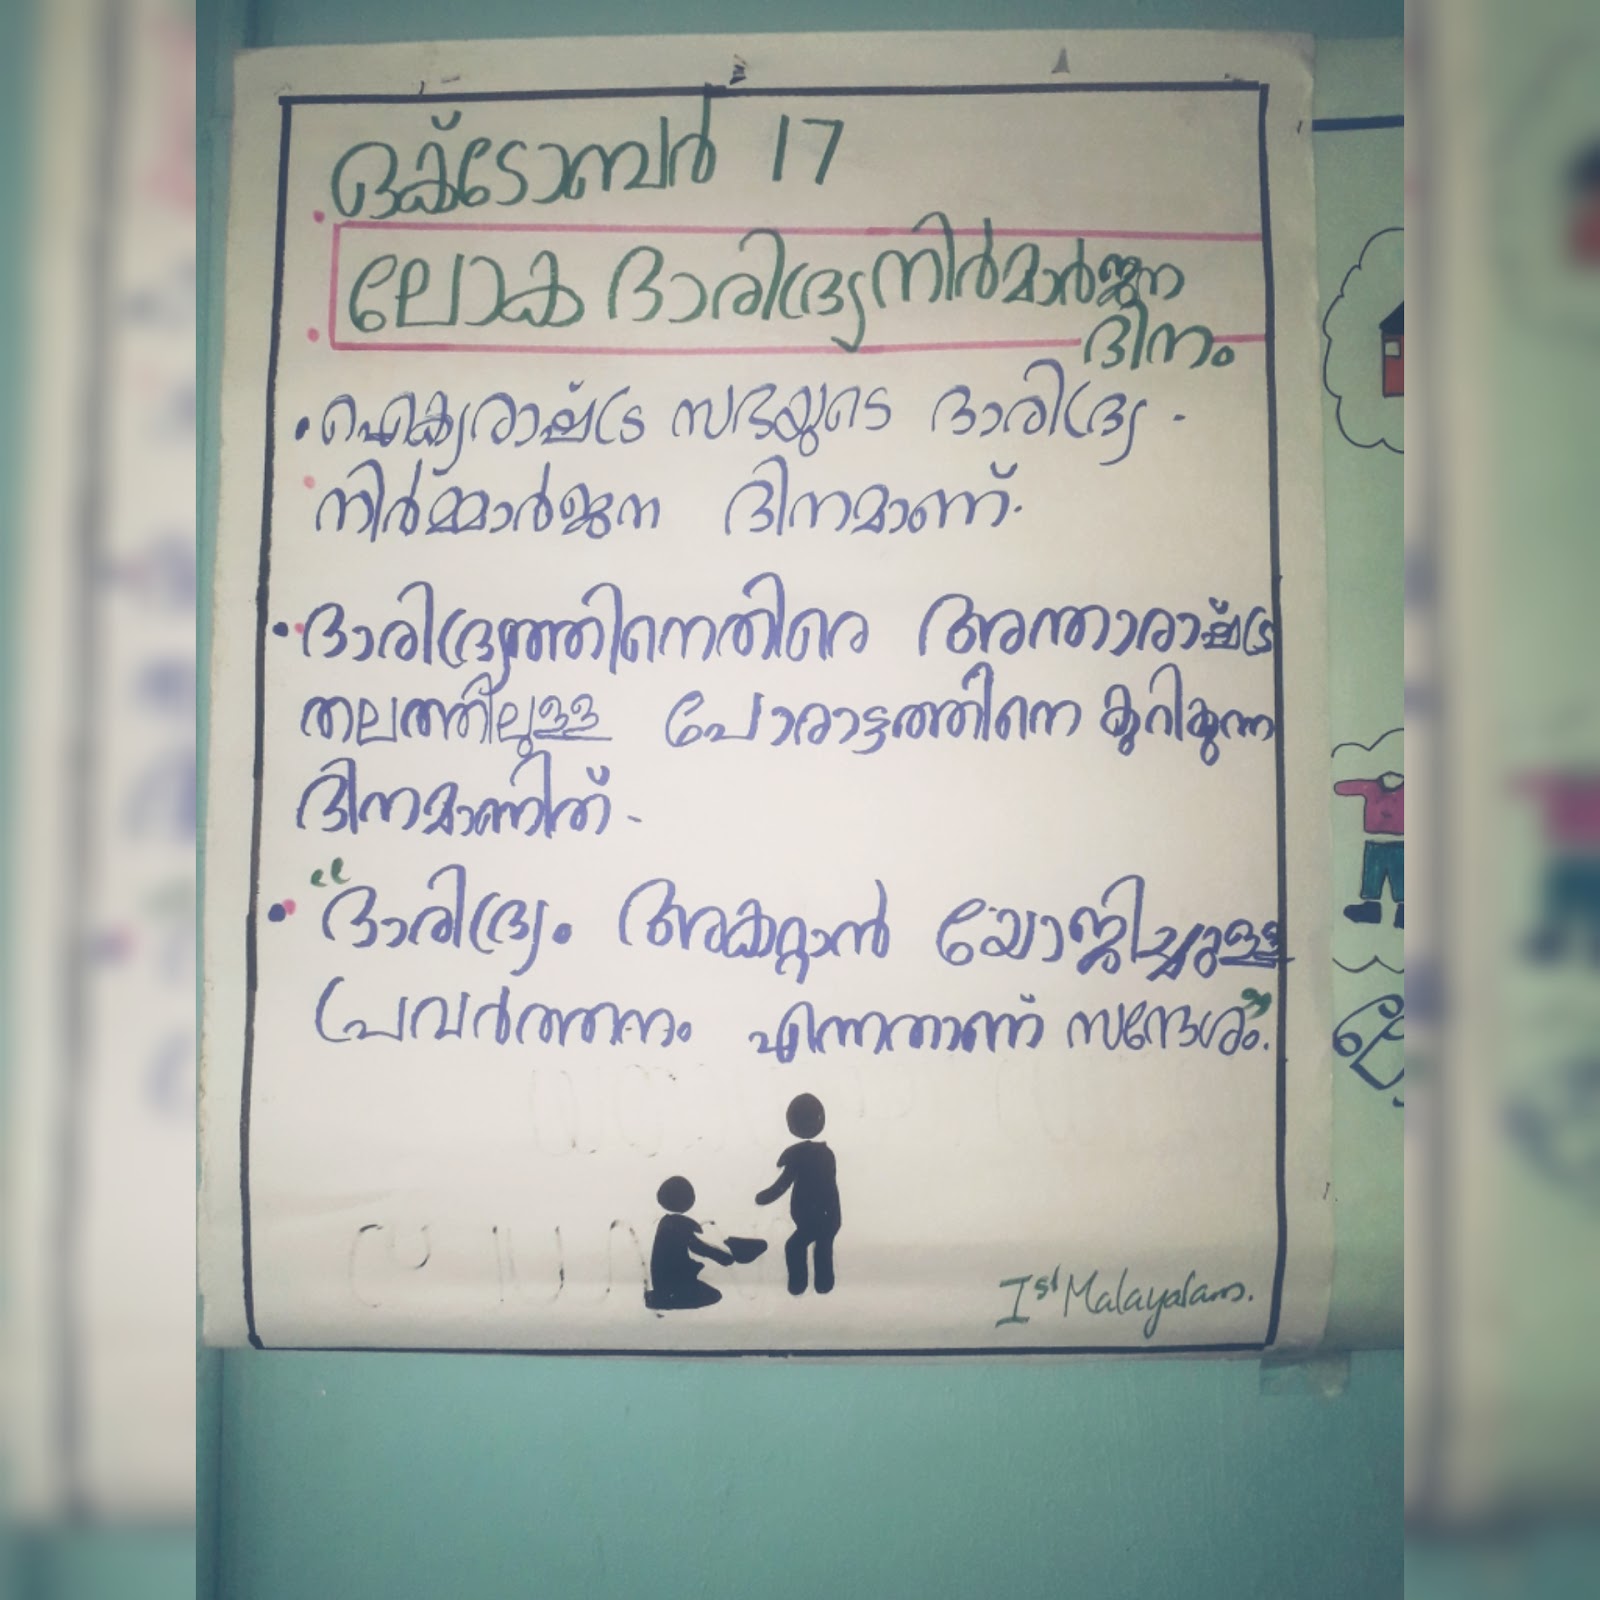 ഒക്ടോബർ 17
ലോക ദാരിദ്ര്യനിർമാർജ്ജന
ദിനം
• ഐക്യരാഷ്ട്ര സഭയുടെ ദാരിദ്ര്യ -
നിർമ്മാർജ്ജന ദിനമാണ്.
• ദാരിദ്ര്യത്തിനെതിരെ അന്താരാഷ്ട്ര
തലത്തിലുള്ള പോരാട്ടത്തിനെ കുറിക്കുന്ന
ദിനമാണിത് -
• "ദാരിദ്ര്യം അകറ്റാൻ യോജിച്ചുള്ള
പ്രവർത്തനം എന്നതാണ് സന്ദേശം".
Ist Malayalam.